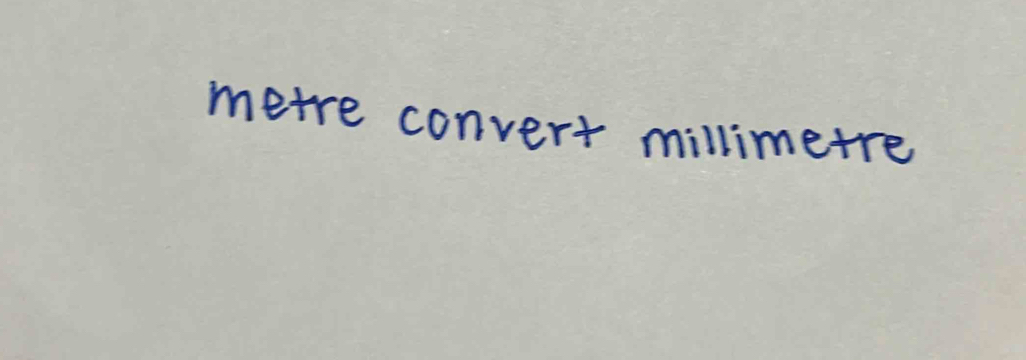 metre convert millimetre